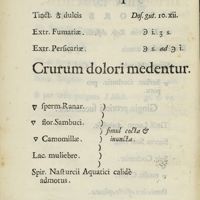 Tinct. è dulcis Dos. gut. 10. xii.
Extr. Fumariæ. ℈ i. з s.
Extr. Persicariæ. ℈ s. ad ℈ i.
Crurum dolori medentur.
▽ sperm. Ranar.
▽ flor. Sambuci.
▽ Camomillæ.
Lac. muliebre.
simul cocta &
inuncta.
Spir. Nasturcii Aquatici calidè
admotus.